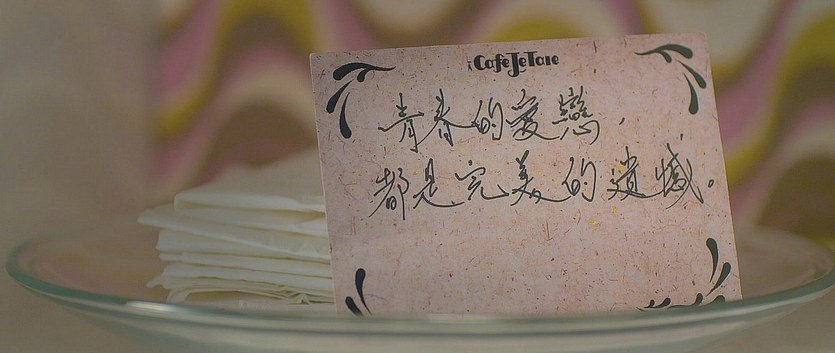 CafeJeTare
青春的愛戀，
都是完美的遺憾。